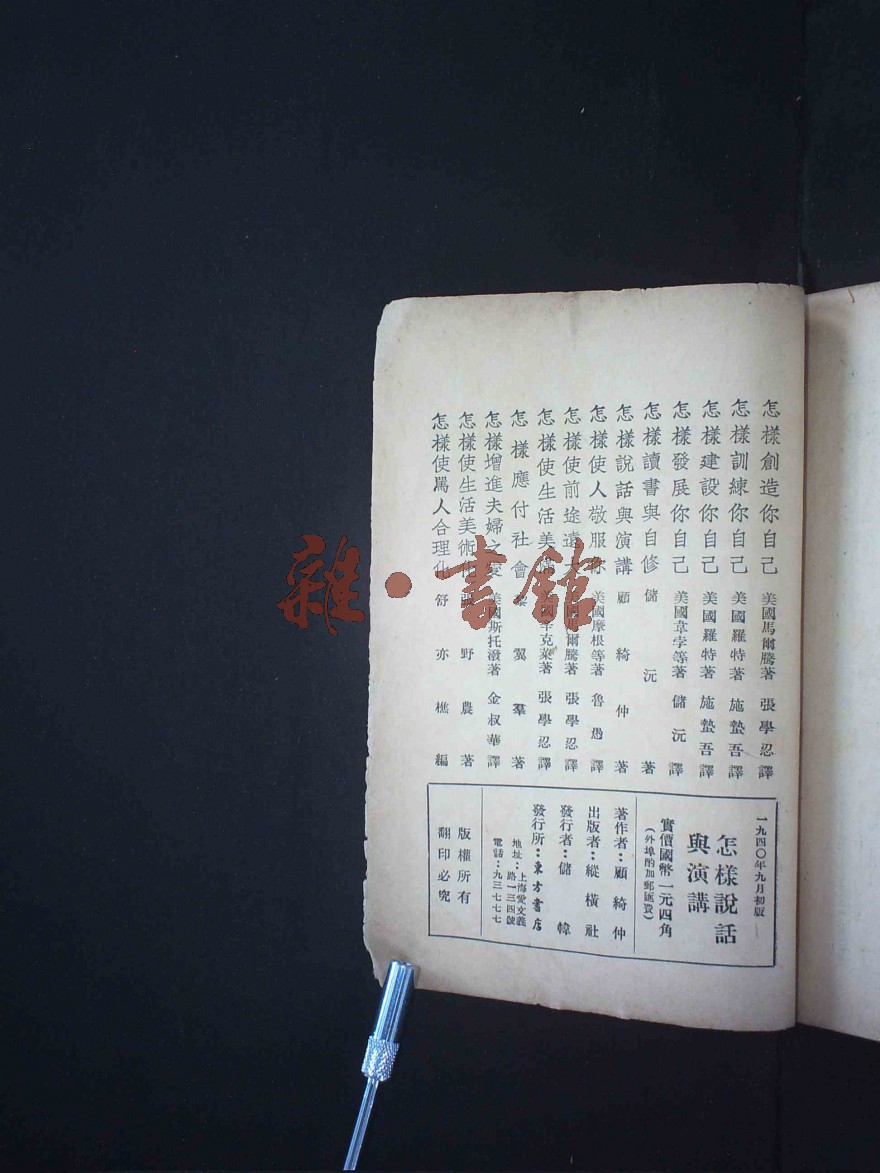 怎樣創造你自己 美國馬爾騰著 張學忍譯
怎樣訓練你自己 美國羅特著 施蟄吾譯
怎樣建設你自己 美國羅特著 施蟄吾譯
怎樣發展你自己 美國韋孛等著 儲沅譯
怎樣讀書與自修 儲沅著
怎樣說話與演講 顧綺仲著
怎樣使人敬服你 美國摩根等著 魯愚譯
怎樣使前途遠 爾騰著 張學忍譯
怎樣使生活美 克萊著 張學忍譯
怎樣應付社會 翼羣著
怎樣增進夫婦之愛 美國斯托潑著 金叔華譯
怎樣使生活美術化 野農著
怎樣使罵人合理化 舒亦樵編
一九四〇年九月初版
怎樣說話
與演講
實價國幣一元四角
(外埠酌加郵匯費)
著作者:顧綺仲
出版者:縱橫社
發行者:儲韓
發行所:東方書店
地址:上海愛文義
路一三四號
電話:九三七七七
版權所有
翻印必究
雜·書館